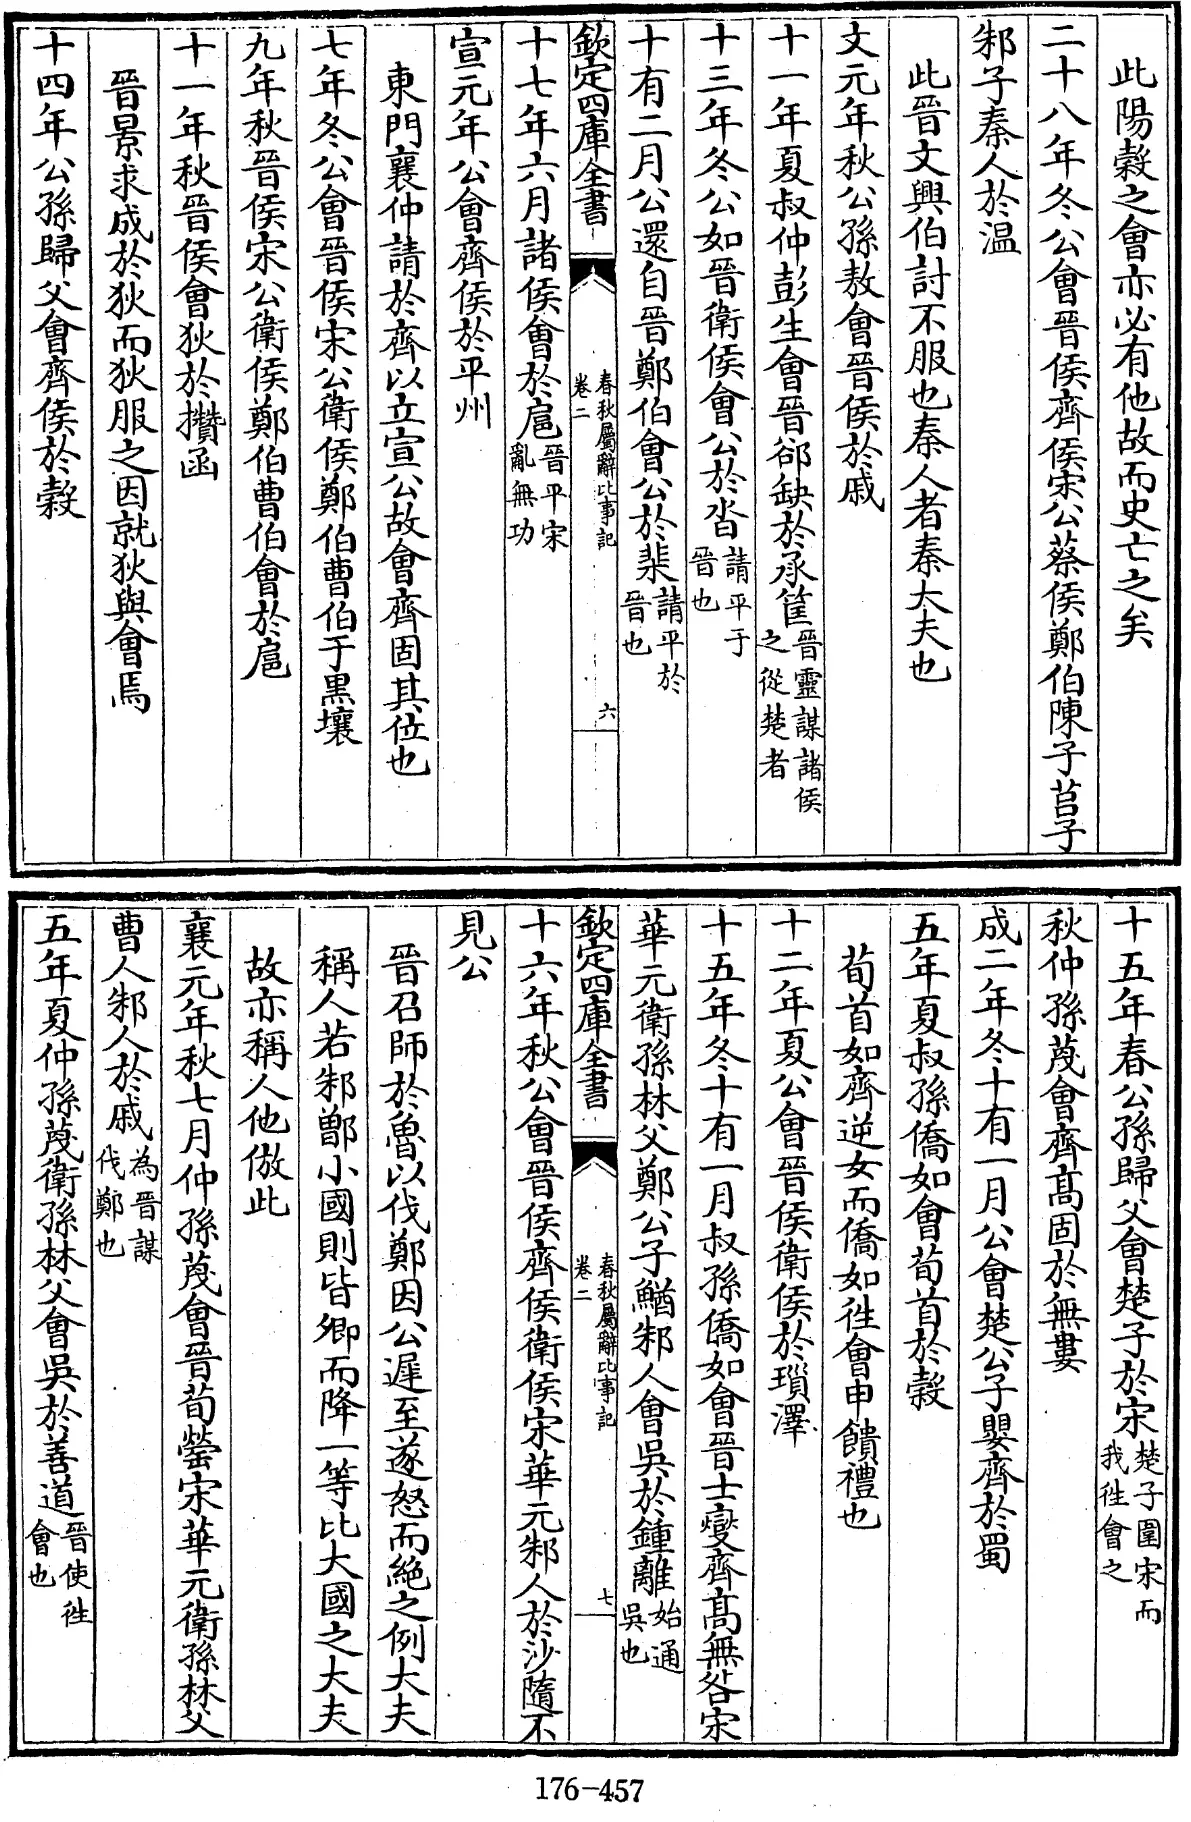 此陽穀之會亦必有他故而史亡之矣
二十八年冬公會晉侯齊侯宋公蔡侯鄭伯陳子莒子
邾子秦人於温
此晉文興伯討不服也秦人者秦大夫也
文元年秋公孫敖會晉侯於戚
十一年夏叔仲彭生會晉郤缺於承筐晉靈謀諸侯之從楚者
十三年冬公如晉衛侯會公於沓請平于晉也
十有二月公還自晉鄭伯會公於棐請平於晉也
欽定四庫全書
春秋屬辭比事記
卷二
六
十七年六月諸侯會於扈晉平宋亂無功
宣元年公會齊侯於平州
東門襄仲請於齊以立宣公故會齊固其位也
七年冬公會晉侯宋公衛侯鄭伯曹伯于黑壤
九年秋晉侯宋公衛侯鄭伯曹伯會於扈
十一年秋晉侯會狄於攢函
晉景求成於狄而狄服之因就狄與會焉
十四年公孫歸父會齊侯於穀
十五年春公孫歸父會楚子於宋楚子圍宋而我徃會之
秋仲孫蔑會齊髙固於無婁
成二年冬十有一月公會楚公子嬰齊於蜀
五年夏叔孫僑如會荀首於穀
荀首如齊逆女而僑如徃會申饋禮也
十二年夏公會晉侯衛侯於瑣澤
十五年冬十有一月叔孫僑如會晉士燮齊髙無咎宋
華元衛孫林父鄭公子鰌邾人會吳於鍾離始通吳也
欽定四庫全書
春秋屬辭比事記
卷二
七
十六年秋公會晉侯齊侯衛侯宋華元邾人於沙隨不
見公
晉召師於魯以伐鄭因公遲至遂怒而絶之例大夫
稱人若邾鄫小國則皆卿而降一等比大國之大夫
故亦稱人他倣此
襄元年秋七月仲孫蔑會晉荀罃宋華元衛孫林父
曹人邾人於戚為晉謀伐鄭也
五年夏仲孫蔑衛孫林父會吳於善道晉使徃會也
176-457